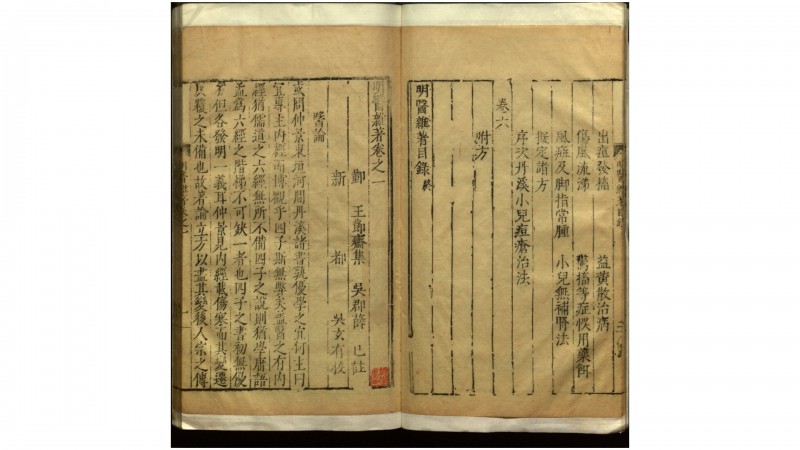 出痘發搐 益黃散治病
傷風流涕 驚搐等症悞用藥餌
風症及脚指常腫 小兒無補腎法
擬定諸方
序次丹溪小兒痘瘡治法
卷六
附方
明醫雜著目錄 終
明醫雜著卷之一
鄞 王節齋集 吳郡薛 己註
新都 吳玄有校
醫論
或問仲景東垣河間丹溪諸書孰優學之宜何主曰
宜專主內經而博觀乎四子斯無弊矣蓋醫之有內
經猶儒道之六經無所不備四子之說則猶學庸語
孟爲六經之階梯不可缺一者也四子之書初無優
劣但各發明一義耳仲景見內經載傷寒而其變遷
反覆之未備也故著論立方以盡其變後人宗之傳